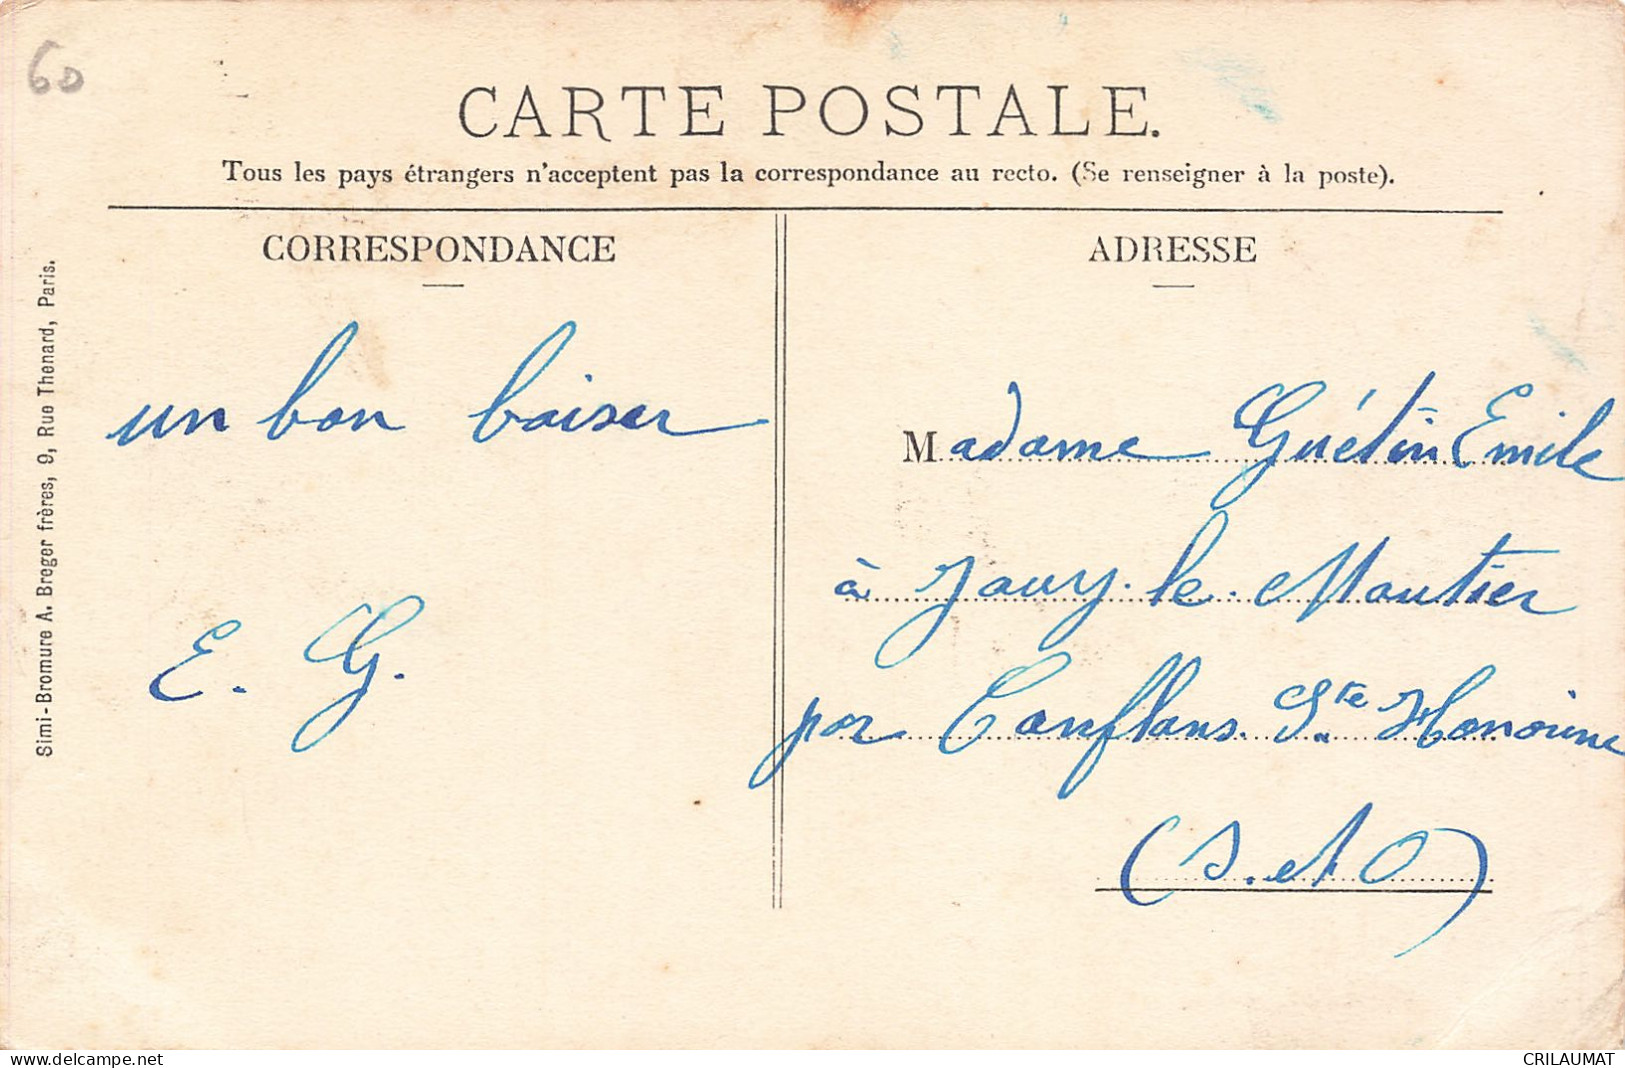 60
CARTE POSTALE.
Tous les pays étrangers n'acceptent pas la correspondance au recto. (Se renseigner à la poste).
CORRESPONDANCE
un bon baiser
E. G.
ADRESSE
Madame Guétin Emile
à Jouy-le-Moutier
par Conflans. Ste Honorine
(S. et O)
Simi-Bromure A. Breger frères, 9, Rue Thenard, Paris.
www.delcampe.net
CRILAUMAT